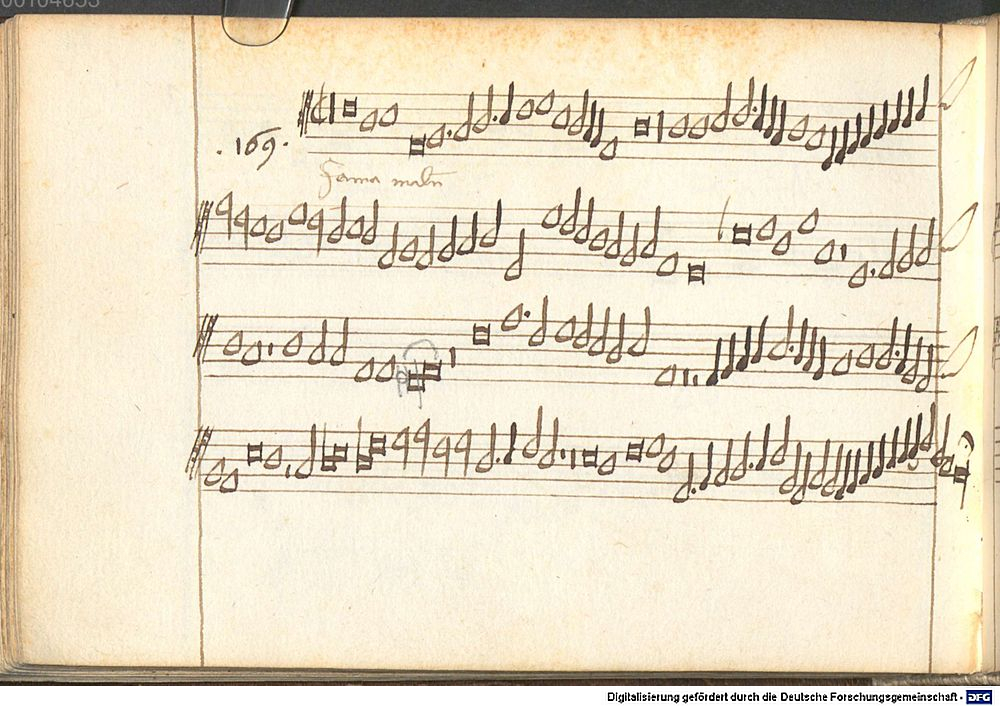 00104633
. 169.
Fama malũ
Digitalisierung gefördert durch die Deutsche Forschungsgemeinschaft - DFG